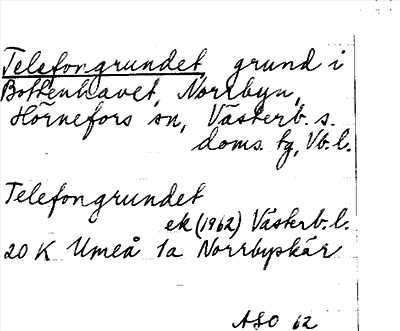 Telefongrundet, grund i
Bottenhavet, Norrbyn,
Hörnefors sn, Västerb. s.
doms. tg, Vb. l.
Telefongrundet
ek (1962) Västerb. l.
20 K Umeå 1a Norrbyskär
ASO 62